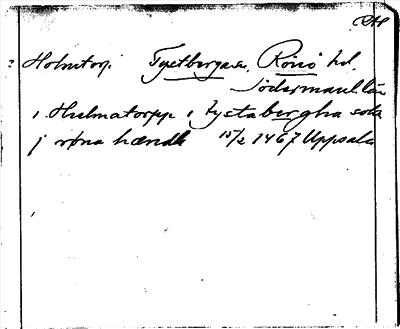 Holmtorp Tystberga sn. Rönö hd.
Södermanl. län
i Hulmatorpp i tystabergha sokn
j røna hændh 15/2 1467 Uppsala